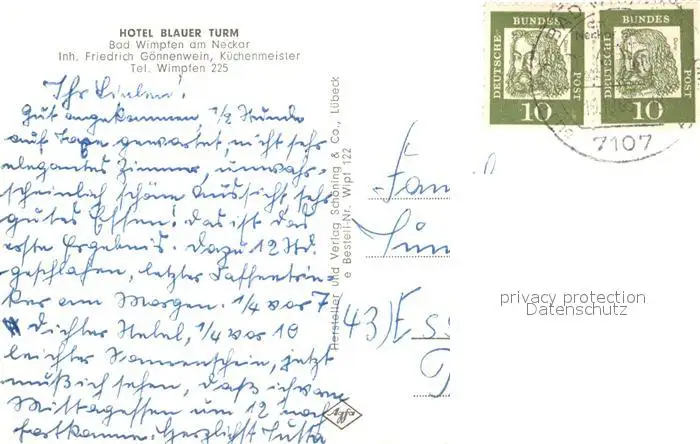 HOTEL BLAUER TURM
Bad Wimpfen am Neckar
Inh. Friedrich Gönnenwein, Küchenmeister
Tel. Wimpfen 225
Ihr Lieben!
Gut angekommen 1/2 Stunde
auf Taxe gewartet, nicht sehr
elegantes Zimmer, unwahr-
scheinlich schöne Aussicht sehr
gutes Essen! das ist das
erste Ergebnis. Dazu 12 Std.
geschlafen, letzter Kaffeetrin-
ker am Morgen. 1/4 vor 7
dichter Nebel, 1/4 vor 10
leichter Sonnenschein, jetzt
muß ich sehen, daß ich vom
Mittagessen um 12 noch
fortkomme. Herzlichst Jutta
Hersteller und Verlag Schöning & Co., Lübeck
e Bestell-Nr. Wipf 122
Agfa
DEUTSCHE BUNDESPOST
10
DEUTSCHE BUNDESPOST
10
BAD WIMPFEN
Neckar
7107
Fam
43) Ess
privacy protection
Datenschutz